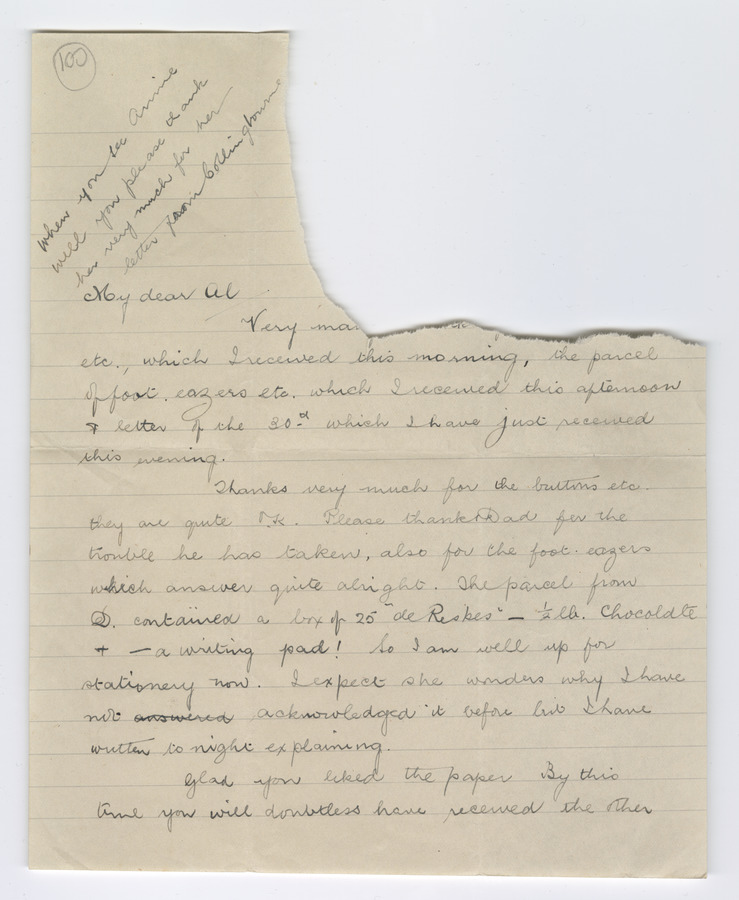 100
When you see Annie
will you please thank
her very much for her
letter from Collingbourne
My dear Al
Very
etc., which I received this morning, the parcel
of foot. eazers etc. which I received this afternoon
& letter of the 30.d which I have just received
this evening.
Thanks very much for the buttons etc.
they are quite O.K. Please thank Dad for the
trouble he has taken, also for the foot. eazers
which answer quite alright. The parcel from
D. contained a box of 25 "de Reskes" – ½ lb. Chocolate
+ – a writing pad! So I am well up for
stationery now. I expect she wonders why I have
not answered acknowledged it before but I have
written to night explaining.
Glad you liked the paper By this
time you will doubtless have received the other